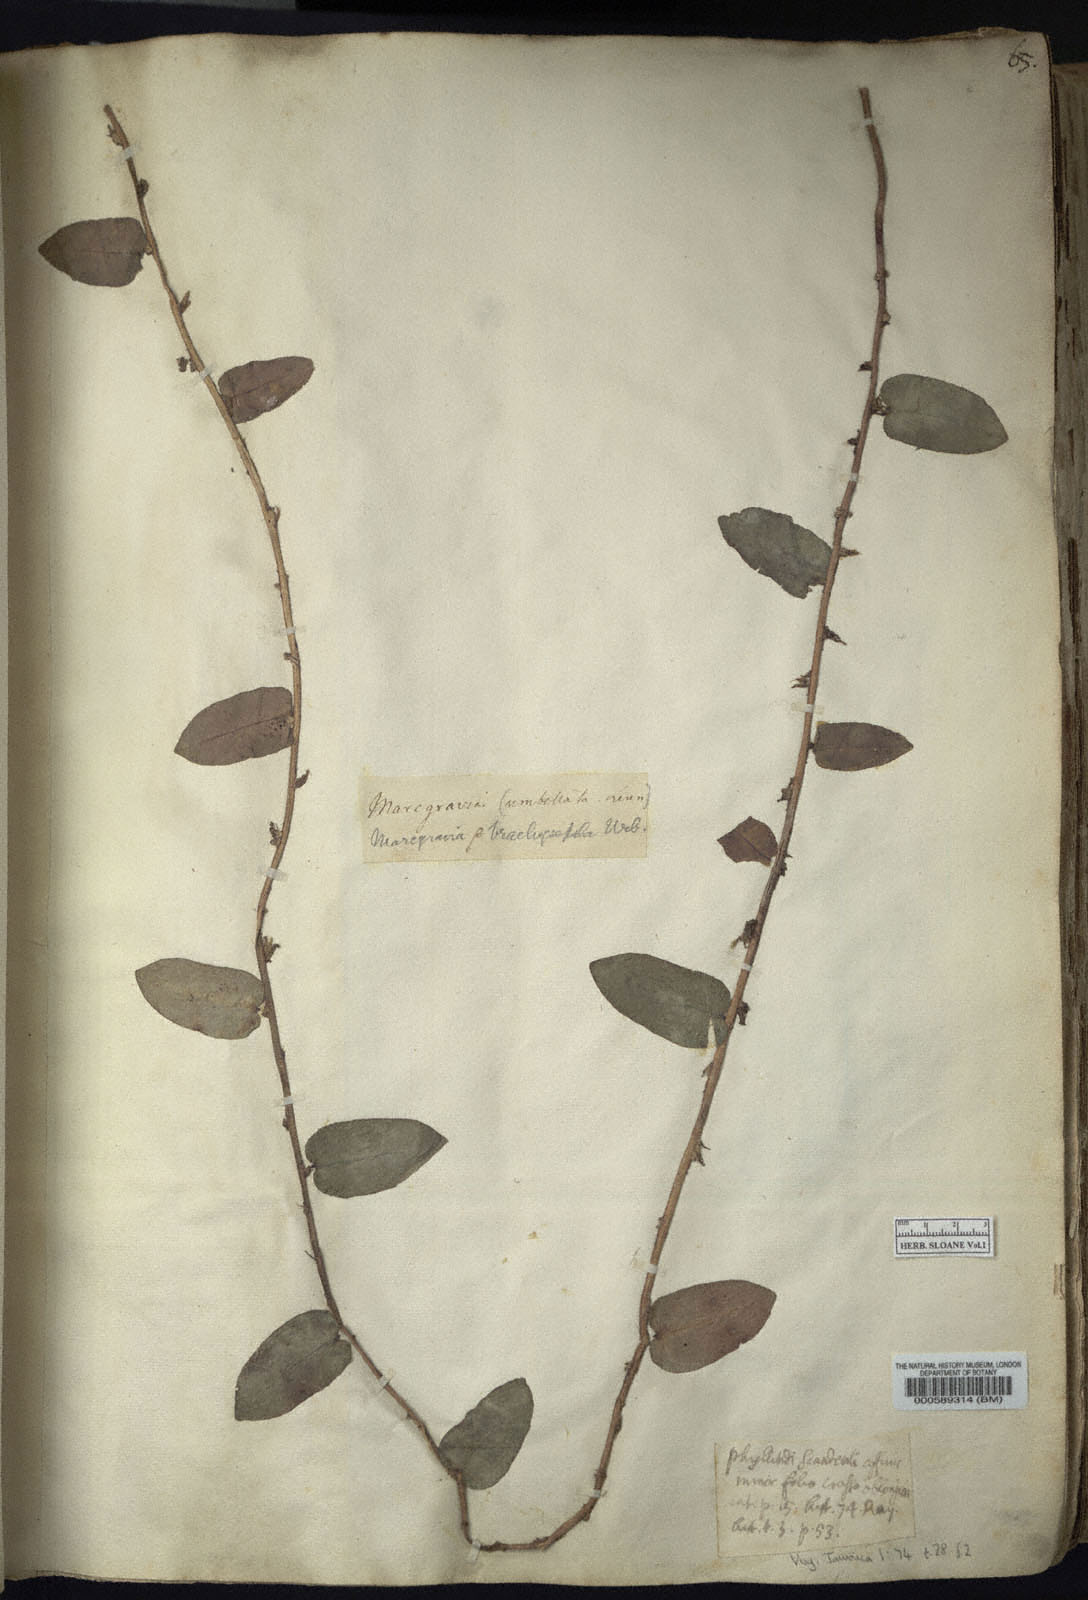 65.
Marcgravia (umbellata
Marcgravia brachysepala Urb.
mm 1 2 3
HERB. SLOANE Vol.1
THE NATURAL HISTORY MUSEUM, LONDON
DEPARTMENT OF BOTANY
000589314 (BM)
phyllitidi scandenti affinis
minor folio crasso
cat. p. 15. hist. 74. Ray.
hist. t. 3. p. 53.
Voy. Jamaica 1: 74 t.28 f.2